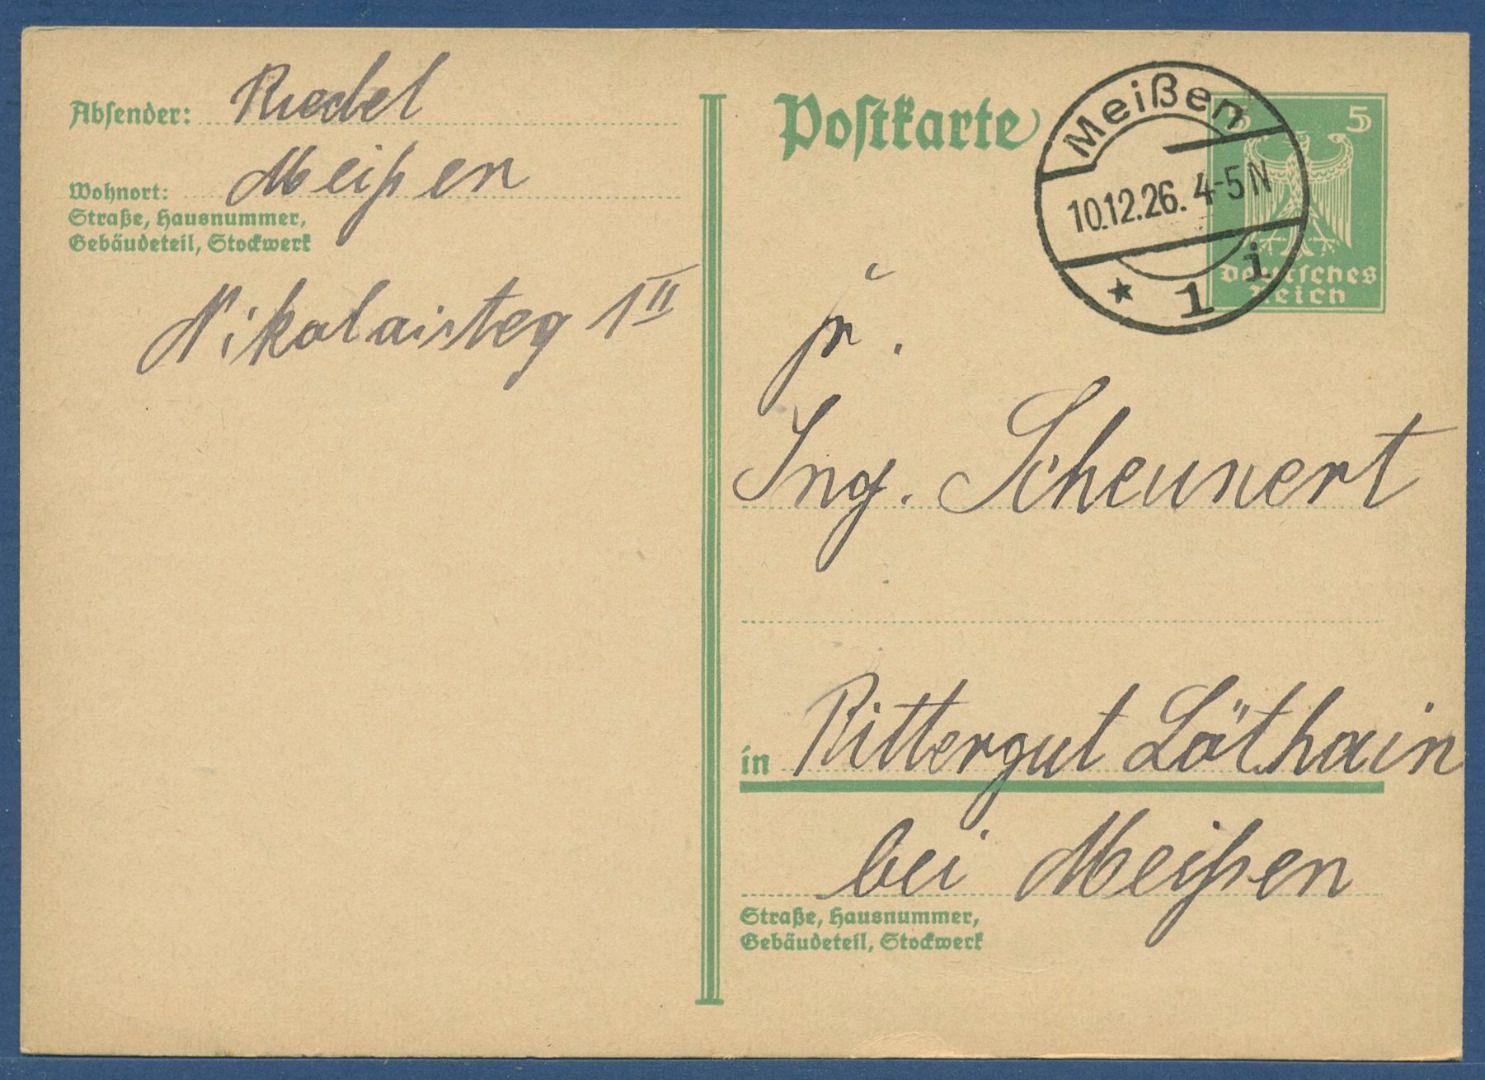 Absender: Riedel
Wohnort: Meißen
Straße, Hausnummer,
Gebäudeteil, Stockwerk
Nikolaisteg 1 II
Postkarte
Meißen
10.12.26. 4-5 N
* 1 i
5 5
Deutsches
Reich
Ing. Scheunert
in Rittergut Löthain
bei Meißen
Straße, Hausnummer,
Gebäudeteil, Stockwerk